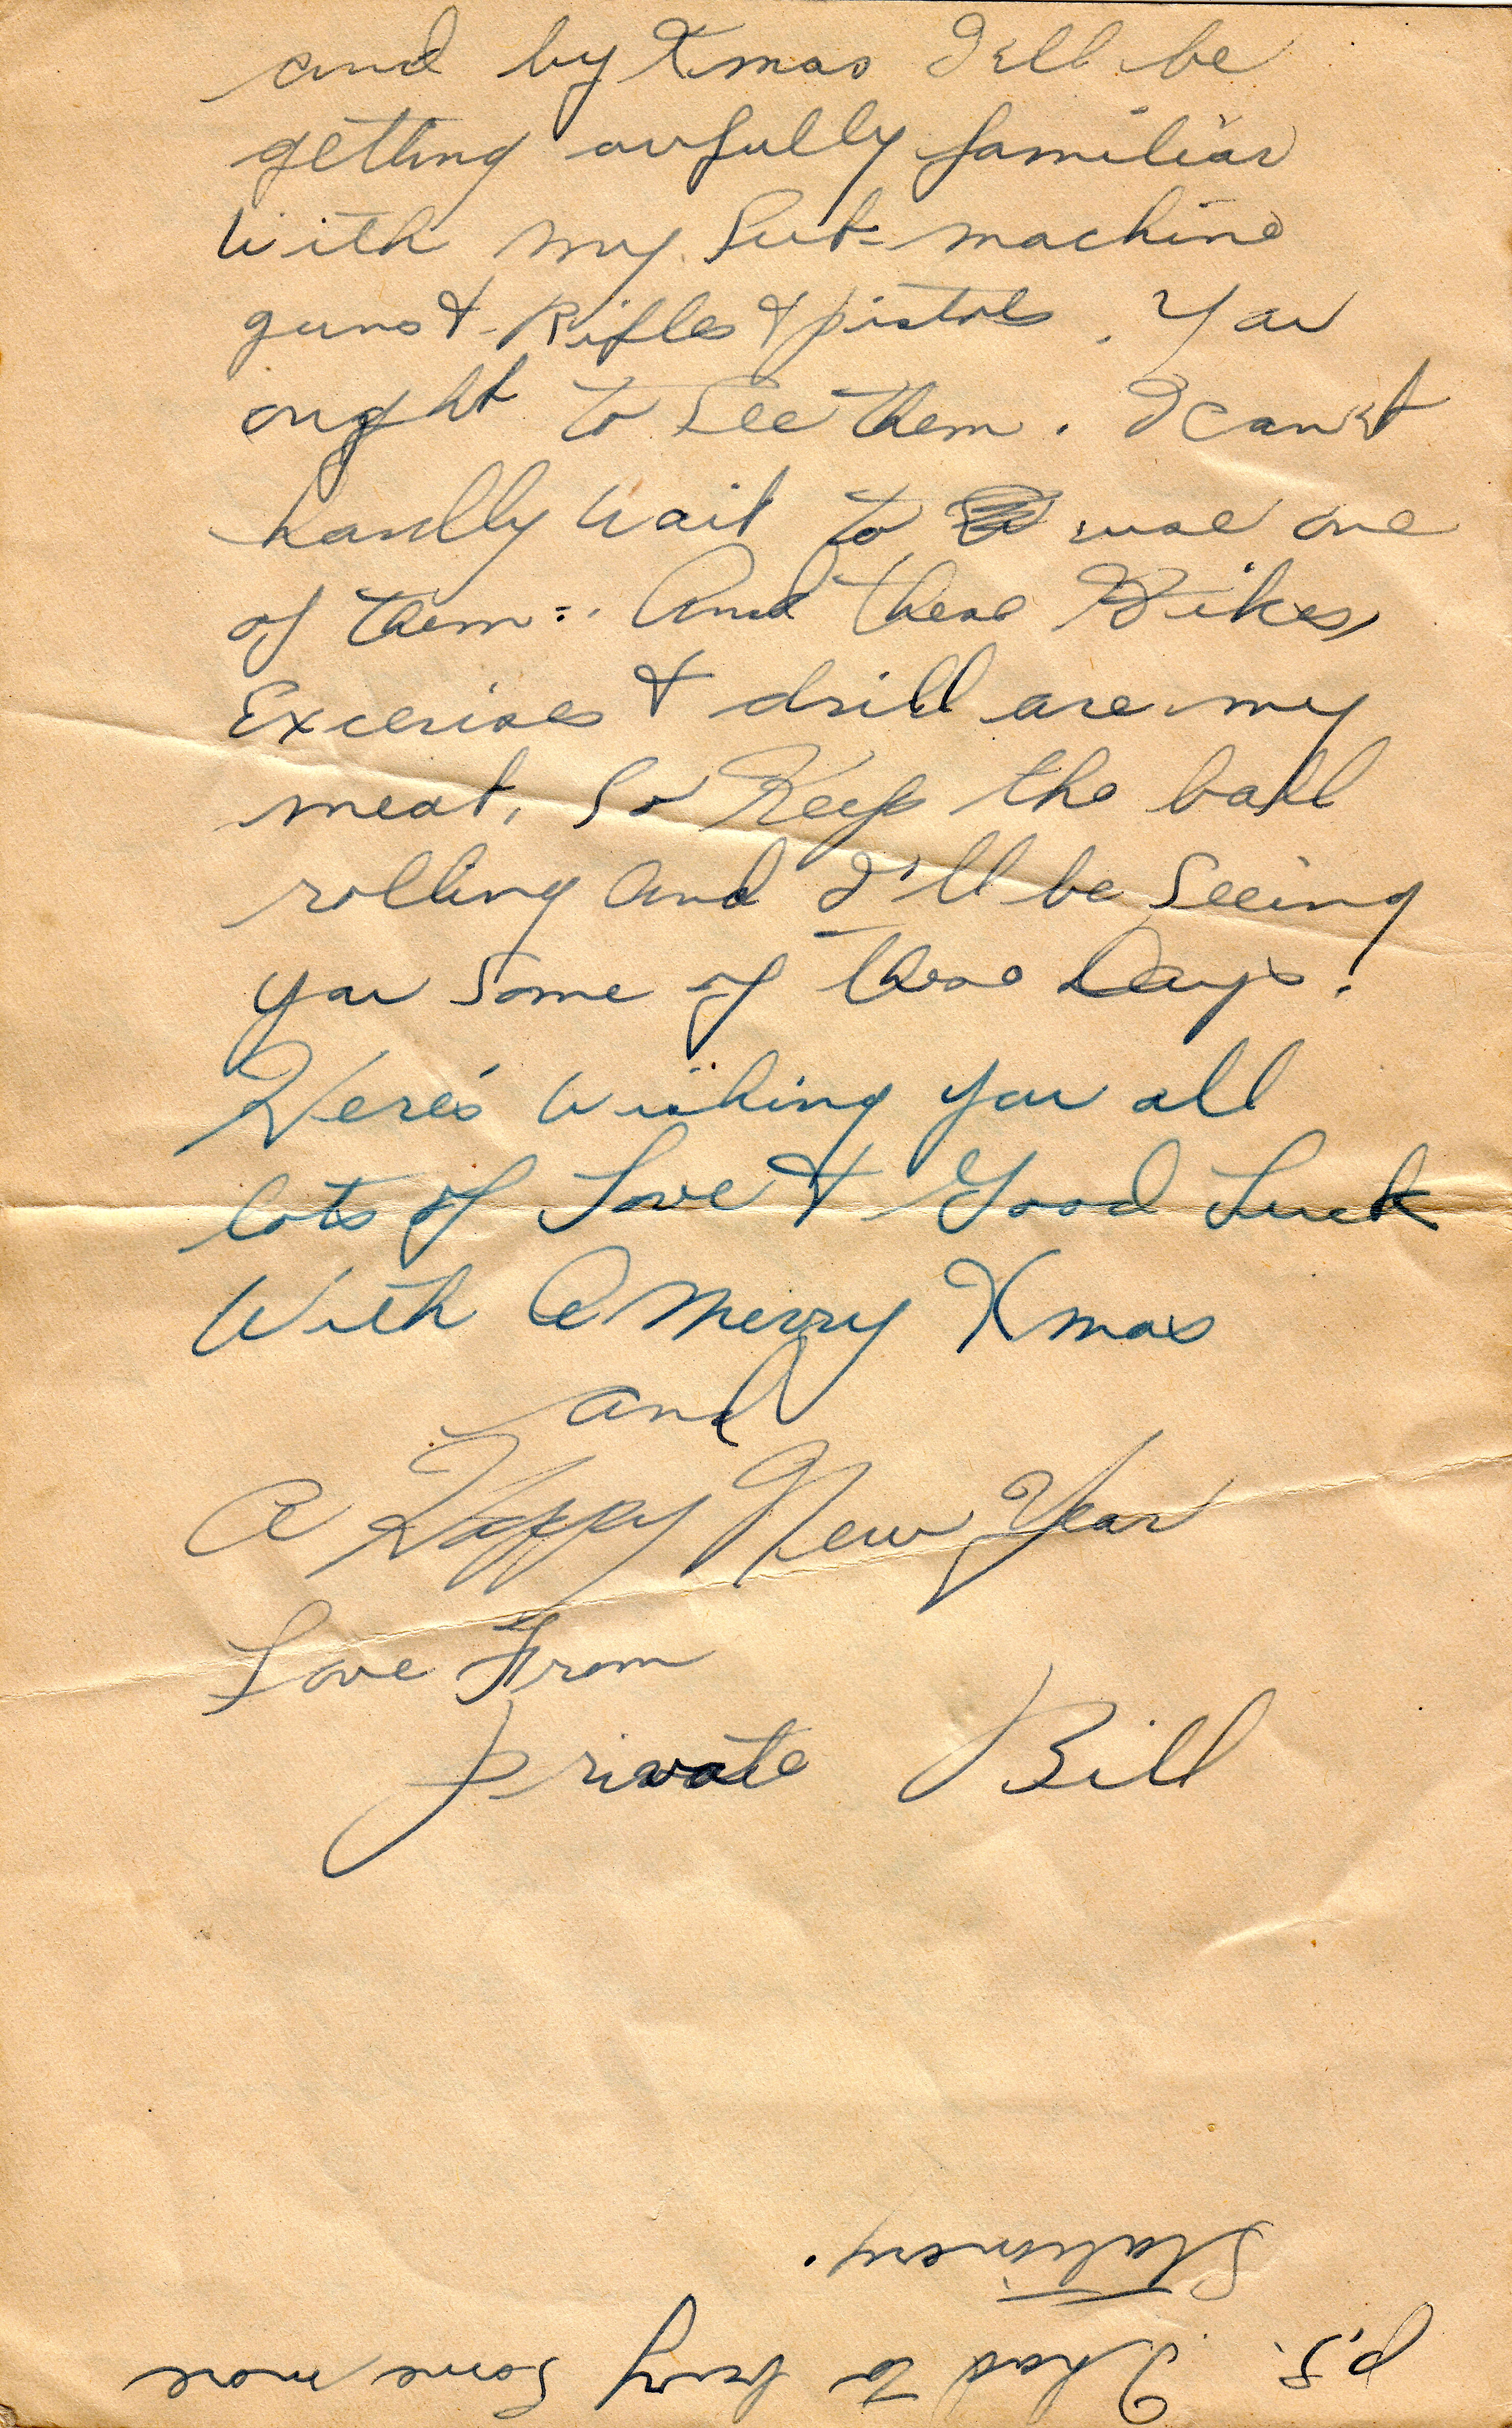 and by Xmas I'll be
getting awfully familiar
with my Sub-machine
guns & Rifles & pistols. You
ought to see them. I can't
hardly wait to use one
of them. And these Hikes,
Excerises & drill are my
meat, So Keep the ball
rolling and I'll be Seeing
you Some of these Days.
Here's wishing you all
lots of Love & Good Luck
With A Merry Xmas
and
A Happy New Year
Love From
Private Bill
p.s. I had to buy some more
Stationery.